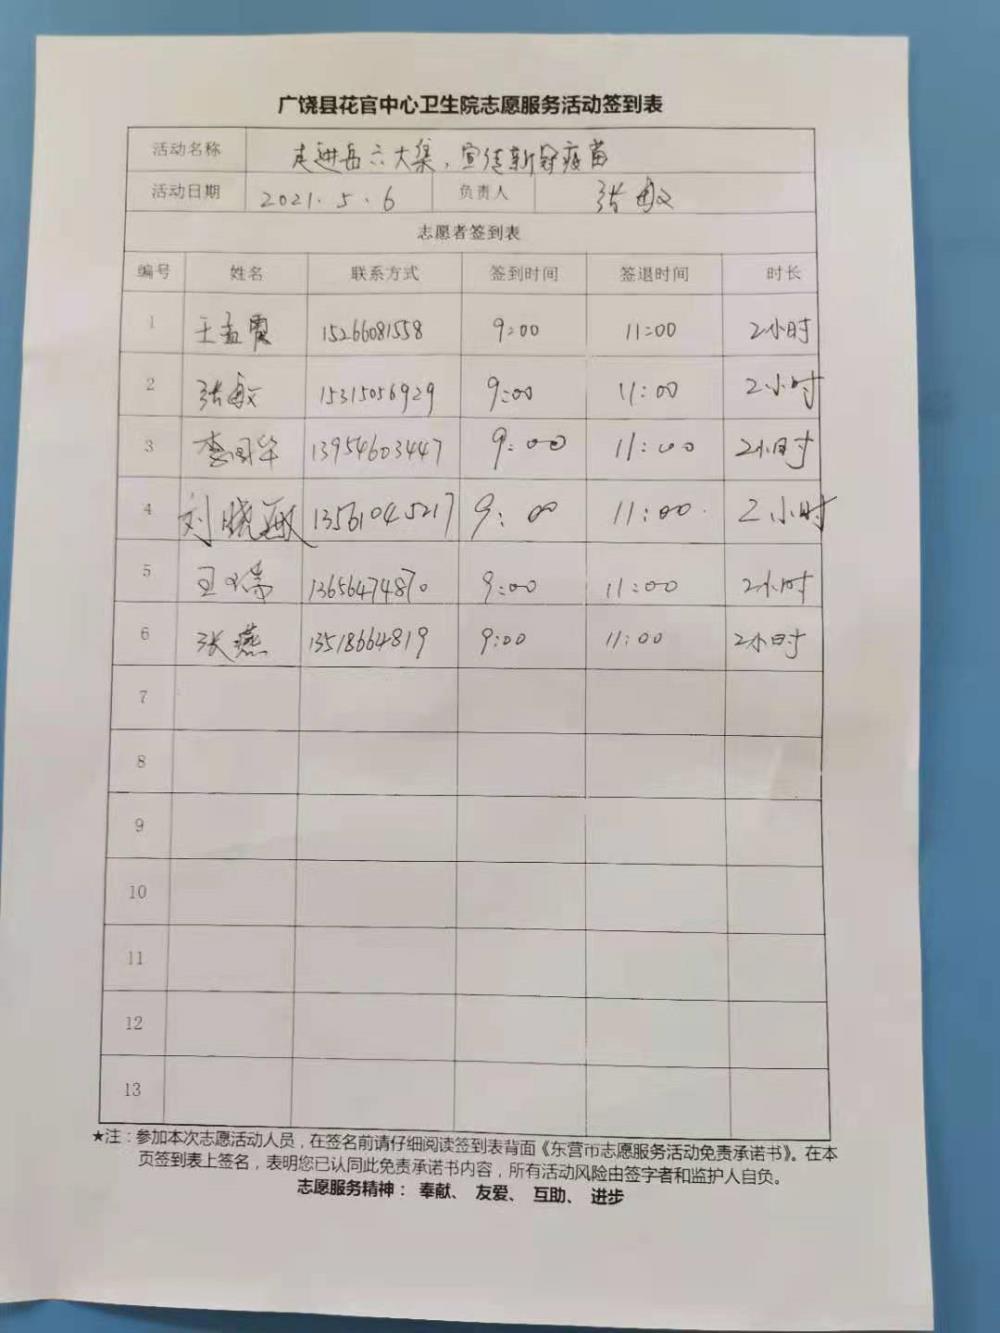 广饶县花官中心卫生院志愿服务活动签到表
活动名称 走进岳六大集、宣传新冠疫苗
活动日期 2021.5.6 负责人 张敏
志愿者签到表
编号 姓名 联系方式 签到时间 签退时间 时长
1 王孟霞 15266081558 9:00 11:00 2小时
2 张敏 15315056929 9:00 11:00 2小时
3 李国华 13954603447 9:00 11:00 2小时
4 刘晓 13561045217 9:00 11:00 2小时
5 王 13656474870 9:00 11:00 2小时
6 张燕 13518664819 9:00 11:00 2小时
7
8
9
10
11
12
13
★注：参加本次志愿活动人员，在签名前请仔细阅读签到表背面《东营市志愿服务活动免责承诺书》。在本
页签到表上签名，表明您已认同此免责承诺书内容，所有活动风险由签字者和监护人自负。
志愿服务精神： 奉献、 友爱、 互助、 进步